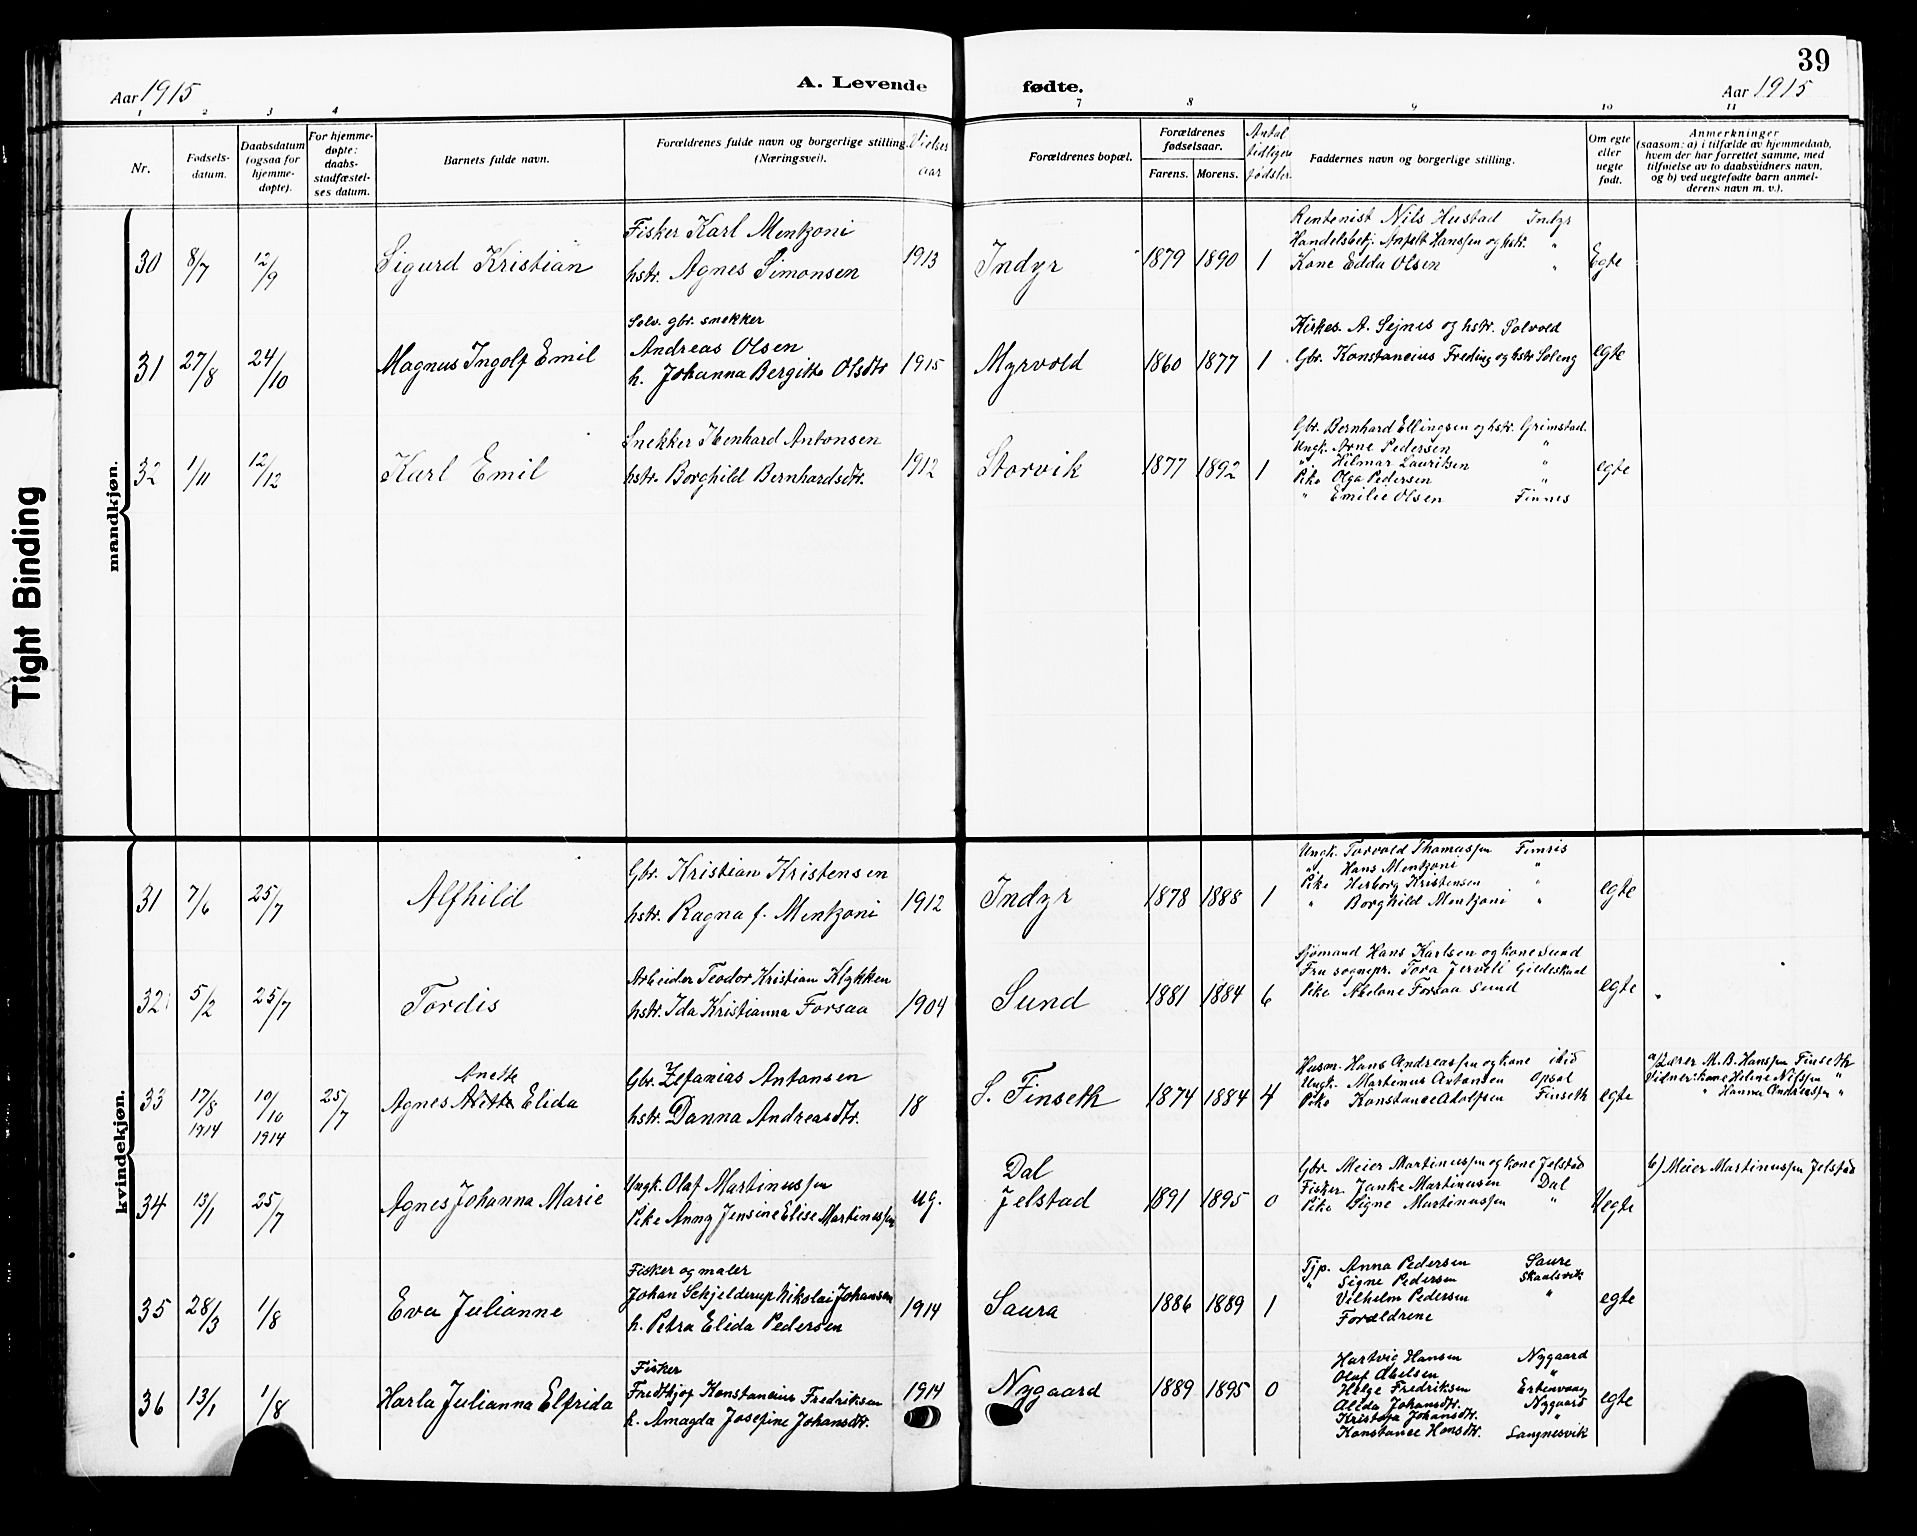 Tight Binding
39
Aar 1915
A. Levende fødte.
Aar 1915
1 2 3 4 7 8 9 10 11
Nr.
Fødsels-
datum.
Daabsdatum
(ogsaa for
hjemme-
døpte).
For hjemme-
døpte:
daabs-
stadfæstel-
ses datum.
Barnets fulde navn.
Forældrenes fulde navn og borgerlige stilling.
(Næringsvei).
Vielses
aar
Forældrenes bopæl.
Forældrenes
fødselsaar.
Farens. Morens.
Antal
tidligere
fødsler
Faddernes navn og borgerlige stilling.
Om egte
eller
uegte
født.
Anmerkninger
(saasom: a) i tilfælde av hjemmedaab,
hvem der har forrettet samme, med
tilføielse av to daabsvidners navn,
og b) ved uegtefødte barn anmel-
derens navn m. v.).
mandkjøn.
30 8/7 12/9 Sigurd Kristian
Fisker Karl Mentzoni
hstr. Agnes Simonsen
1913 Indyr 1879 1890 1
Rentenist Nils Hustad Indyr
Handelsbetj. Hanssen og hstr. "
Kone Edda Olsen "
Egte
31 27/8 24/10 Magnus Ingolf Emil
Selv. gbr. snekker
Andreas Olsen
h. Johanna Bergitte Olsdtr
1915 Myrvold 1860 1877 1
Kirkes. A. Sejnes og hstr. Solvold
Gbr. Konstancius Freding og hstr Soleng
egte
32 1/11 12/12 Karl Emil
Snekker Ibenhard Antonsen
hstr. Borghild Bernhardsdtr.
1912 Storvik 1877 1892 1
Gbr. Bernhard Ellingsen og hstr. Grimstad.
Ungk. Arne Pedersen "
" Hilmar Lauritsen "
Pike Olga Pedersen "
" Emilie Olsen Finnes
egte
kvindekjøn.
31 7/6 25/7 Alfhild
Gbr. Kristian Kristensen
hstr. Ragna f. Mentzoni
1912 Indyr 1878 1888 1
Ungk. Torvold Thomassen Finnis
" Hans Mentzoni "
Pike Herborg Kristensen "
" Borghild Mentzoni "
egte
32 5/2 25/7 Tordis
Arbeider Teodor Kristian Klykken
hstr. Ida Kristianna Forsaa
1904 Sund 1881 1884 6
Sjømand Hans Karlsen og kone Sund
Fru sognepr. Tora Jervell Gildeskaal
Pike Abelone Forsaa Sund
egte
33 17/8 1914 10/10 1914 25/7
Anette
Agnes Elida
Gbr. Zefanias Antonsen
hstr. Danna Andreasdtr.
18 S. Finseth 1874 1884 4
Husm. Hans Andreassen og kone ibid
Ungk. Martenus Antonsen Opsal
Pike Konstance Adolfsen Finseth
egte
a) Lærer M. B. Hanssen Finseth
Vidner: kone Heline Nilssen "
" Hanna Andreassen "
34 13/1 25/7 Agnes Johanna Marie
Ungk. Olaf Martinussen
Pike Anny Jensine Elise Martinussen
ug.
Dal
Jelstad
1891 1895 0
Gbr. Meier Martinussen og kone Jelstad
Fisker Janke Martinusen Dal
Pike Signe Martinussen "
Uegte
b) Meier Martinussen Jelstad
35 28/3 1/8 Eva Julianne
Fisker og maler
Johan Schjelderup Nikolai Johansen
h. Petra Elida Pedersen
1914 Saura 1886 1889 1
Tjp. Anna Pedersen Saure
" Signe Pedersen Skaalsvik
Vilhelm Pedersen "
Forældrene
egte
36 13/1 1/8 Harla Julianna Elfrida
Fisker
Fredthjof Konstancius Fredriksen
h. Amagda Josefine Johansdtr.
1914 Nygaard 1889 1895 0
Hartvig Hansen Nygaard
Olaf Abelsen "
Helge Fredriksen Ertenvaag
Alida Johansdtr. Nygaard
Kristofa Johansdtr. "
Konstance Hansdtr. Langnesvik
egte